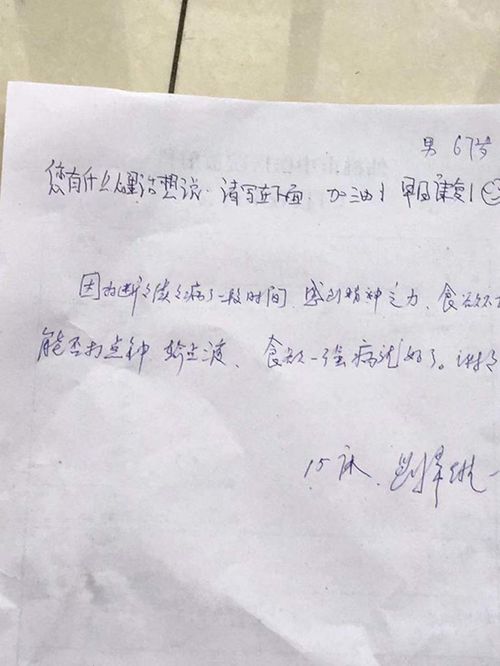 男 67岁
您有什么心里话想说,请写在下面 加油!早日康复!
因为断断续续病了一段时间,感到精神乏力、食欲不
能否打点针 输点液、食欲一强病就好了。谢
15床